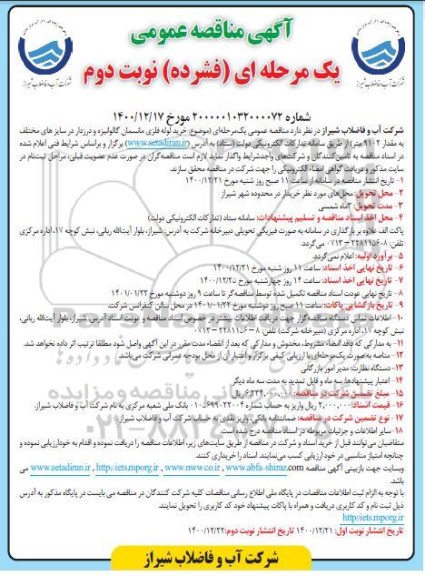 آگهی مناقصه عمومی
یک مرحله ای (فشرده) نوبت دوم
شرکت آب و فاضلاب شیراز
شرکت آب و فاضلاب شیراز
شماره ۲۰۰۰۰۰۱۰۳۲۰۰۰۰۷۲ مورخ ۱۴۰۰/۱۲/۱۷
شرکت آب و فاضلاب شیراز در نظر دارد مناقصه عمومی یک‌مرحله‌ای (موضوع: خرید لوله فلزی مانیسمان گالوانیزه و درزدار در سایزهای مختلف
به مقدار ۹۱۰۲ متر) از طریق سامانه تدارکات الکترونیکی دولت (ستاد) به آدرس (www.setadiran.ir) برگزار و براساس شرایط فنی اعلام شده
در اسناد مناقصه به تأمین‌کنندگان و شرکت‌های واجدشرایط واگذار نماید لازم است مناقصه‌گران در صورت عدم عضویت قبلی، مراحل ثبت‌نام در
سایت مذکور و دریافت گواهی امضاء الکترونیکی را جهت شرکت در مناقصه محقق سازند.
۱- تاریخ انتشار مناقصه در سامانه از ساعت ۱۱ صبح روز شنبه مورخ ۱۴۰۰/۱۲/۲۱
۲- محل تحویل: محل‌های مورد نظر خریدار در محدوده شهر شیراز
۳- مدت تحویل: ۳ماه شمسی
۴- محل اخذ اسناد مناقصه و تسلیم پیشنهادات: سامانه ستاد (تدارکات الکترونیکی دولت)
پاکت الف علاوه بر بارگذاری در سامانه به صورت فیزیکی تحویلی دبیرخانه شرکت به آدرس: شیراز، بلوار آیت‌الله ربانی، نبش کوچه ۱۷، اداره مرکزی
تلفن: ۸-۲۲۸۱۱۵۶-۰۷۱۳ می‌گردد.
۵- برآورد اولیه: اعلام نمی‌گردد
۶- تاریخ نهایی اخذ اسناد: ساعت ۱۱ روز شنبه مورخ ۱۴۰۰/۱۲/۲۱
۷- تاریخ نهایی اخذ اسناد: ساعت ۱۴ روز چهارشنبه مورخ ۱۴۰۰/۱۲/۲۵
۸- تاریخ نهایی عودت اسناد مناقصه تکمیل شده توسط مناقصه‌گر تا ساعت ۹ روز دوشنبه مورخ ۱۴۰۱/۰۱/۲۲
۹- تاریخ بازگشایی پاکات: ساعت ۱۱ صبح روز دوشنبه مورخ ۱۴۰۱/۰۱/۲۲ در محل سالن کنفرانس شرکت.
۱۰- اطلاعات تماس دستگاه مناقصه‌گزار جهت دریافت اطلاعات بیشتر در خصوص اسناد مناقصه و عودت اسناد آدرس شیراز، بلوار آیت‌الله ربانی،
نبش کوچه ۱۱، اداره مرکزی (دبیرخانه شرکت) تلفن: ۸-۲۲۸۱۱۵۶-۰۷۱۳
۱۱- به مدارکی که فاقد امضاء، مشروط، مخدوش و مدارکی که بعد از انقضاء مدت مقرر در این آگهی واصل شود مطلقا ترتیب اثر داده نخواهد شد.
۱۲- مناقصه به صورت یک‌مرحله‌ای با ارزیابی کیفی برگزار و اعتبار آن از محل بودجه عمرانی شرکت می‌باشد.
۱۳- دستگاه نظارت: مدیر امور بازرگانی
۱۴- اعتبار پیشنهادها: سه ماه و قابل تمدید به مدت سه ماه دیگر
۱۵- مبلغ تضمین شرکت در مناقصه:
۱۷- نوع تضمین شرکت در مناقصه: ضمانتنامه بانکی، واریز نقدی به حساب شرکت آب و فاضلاب شیراز
۱۸- سایر اطلاعات و جزئیات مربوطه در اسناد مناقصه درج شده است.
متقاضیان می‌توانند قبل از خرید اسناد و شرکت در مناقصه از طریق سایت‌های زیر، اطلاعات مناقصه را دریافت نموده و اقدام به خودارزیابی نموده و
چنانچه امتیاز مناسبی در خود ارزیابی کسب می‌نمایند. اسناد را خریداری کنند.
وبسایت جهت بازبینی آگهی مناقصه www.setadiran.ir , http://iets.mporg.ir , www.nww.co.ir , www.abfa-shiraz.com می
باشد.
با توجه به الزام ثبت اطلاعات مناقصات در پایگاه ملی اطلاع رسانی مناقصات کلیه شرکت کنندگان در مناقصه می بایست در پایگاه مذکور به آدرس
ذیل ثبت نام و کد کاربری دریافت و همراه با پاکات پیشنهاد خود کد کاربری را تحویل نمایند.
http//iets.mporg.ir
تاریخ انتشار نوبت اول: ۱۴۰۰/۱۲/۲۱ تاریخ انتشار نوبت دوم: ۱۴۰۰/۱۲/۲۲
شرکت آب و فاضلاب شیراز